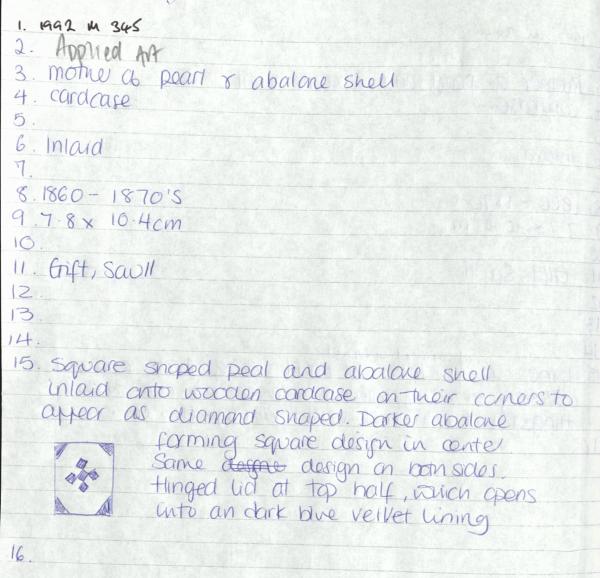 1. 1992 M 345
2. Applied Art
3. mother of pearl & abalone shell
4. cardcase
5.
6. Inlaid
7.
8. 1860 - 1870'S
9. 7.8 x 10.4cm
10.
11. Gift, Saull
12.
13.
14.
15. Square shaped peal and abalone shell
inlaid onto wooden cardcase on their corners to
appear as diamond shaped. Darker abalone
forming square design in center
Same design on both sides.
Hinged lid at top half, which opens
into an dark blue velvet lining
16.